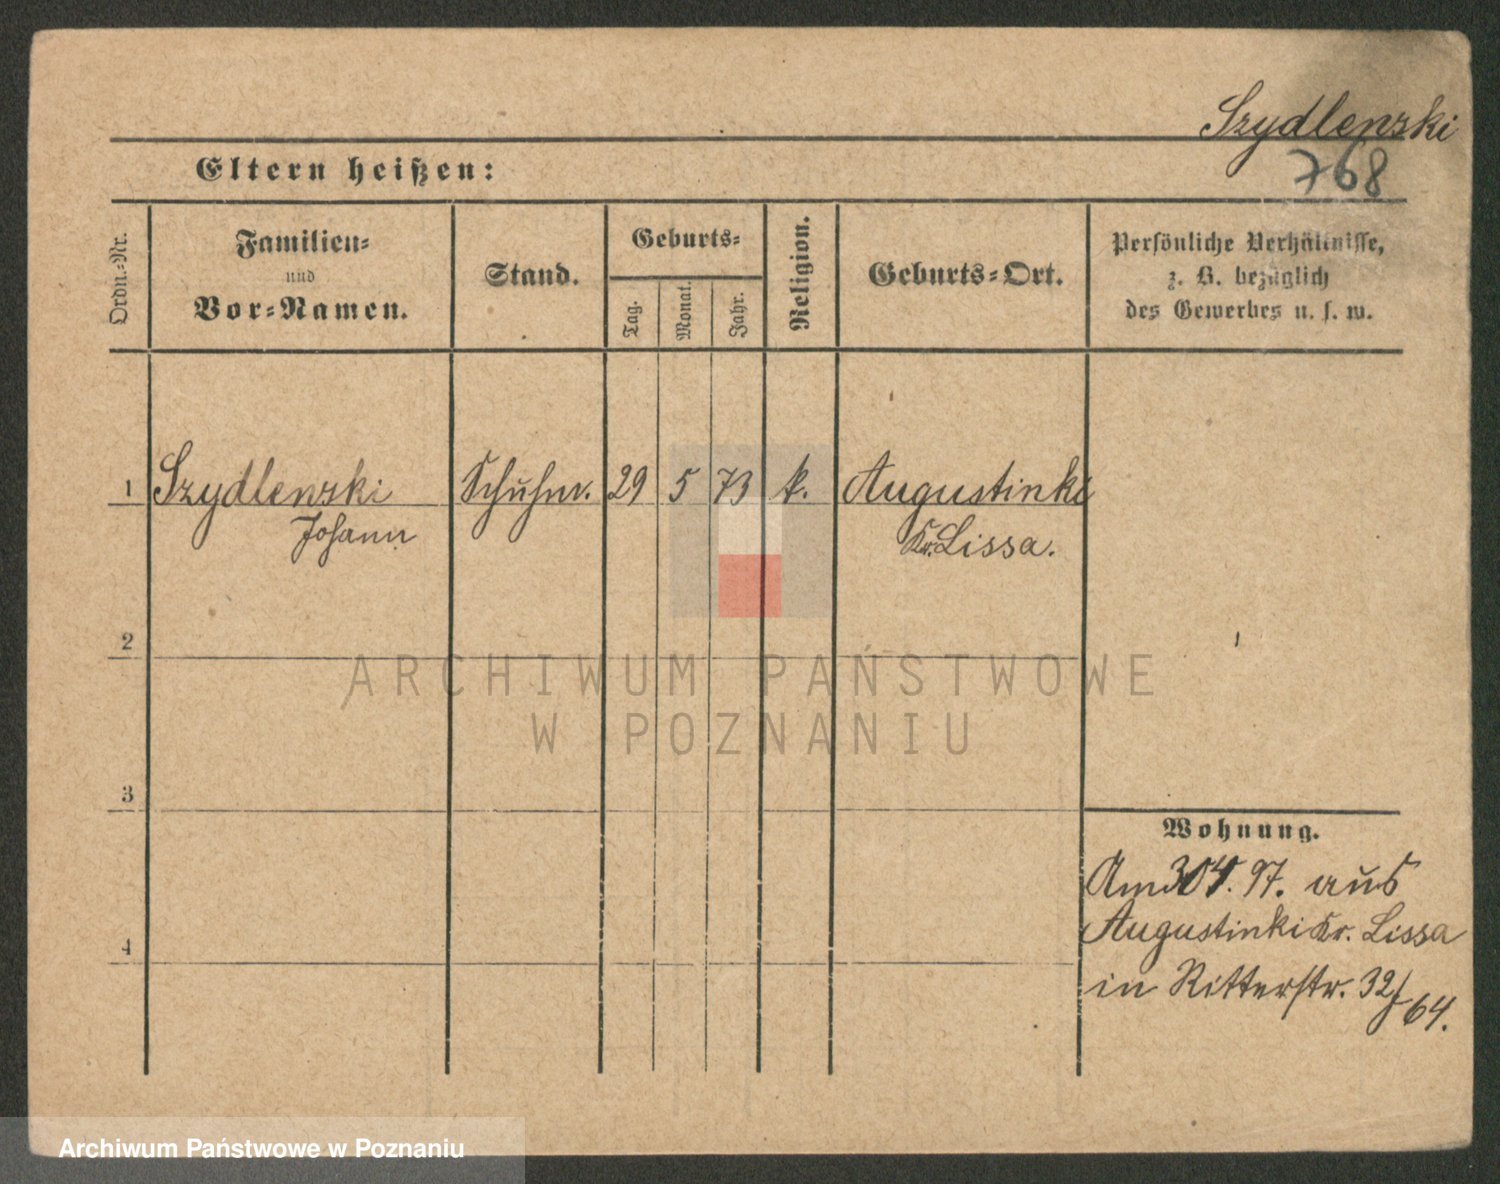 Szydlenski
768
Eltern heißen:
Ordn.-Nr.
Familien-
und
Vor-Namen.
Stand.
Geburts-
Tag.
Monat.
Jahr.
Religion.
Geburts-Ort.
Persönliche Verhältnisse,
z. B. bezüglich
des Gewerbes u. s. w.
1 Szydlenski Schuhm. 29 5 73 k. Augustinki
Johann Kr. Lissa.
2
ARCHIWUM PAŃSTWOWE
W POZNANIU
3
Wohnung.
Am 97. aus
4 Augustinki Kr. Lissa
in Ritterstr. 32/
64.
Archiwum Państwowe w Poznaniu